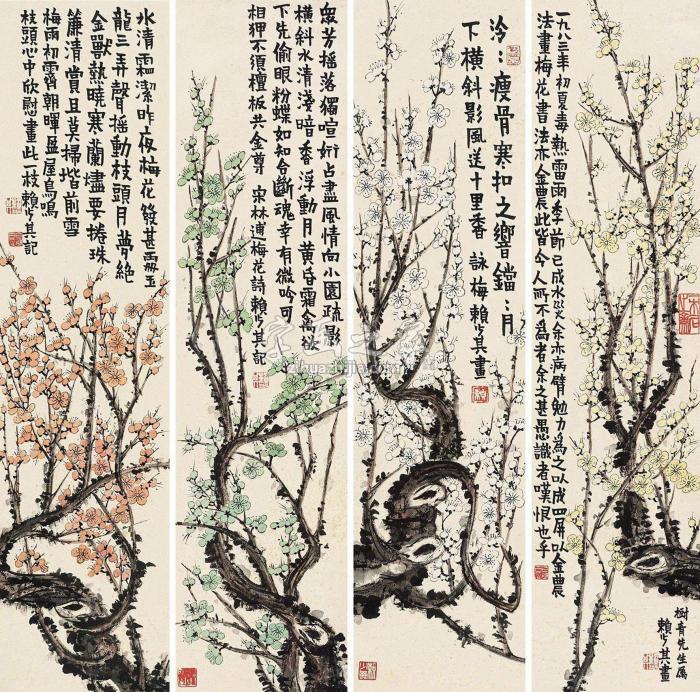 一九八三年初夏毒熱雷雨季節已成水災余亦病臂勉力為之以成四屏以金農
法畫梅花書法亦金農此皆今人所不為者余之甚愚識者嘆恨也乎
樹青先生屬
賴少其畫
泠：瘦骨寒扣之響鐺：月
下橫斜影風送十里香 詠梅賴少其畫
眾芳搖落獨喧妍占盡風情向小園疏影
橫斜水清淺暗香浮動月黃昏霜禽欲
下先偷眼粉蝶如知合斷魂幸有微吟可
相狎不須檀板共金尊 宋林逋梅花詩 賴少其記
水清霜潔昨夜梅花發甚靈玉
龍三弄聲搖動枝頭月夢絕
金獸熱曉寒蘭燼要捲珠
簾清賞且莫掃堦前雪
梅雨初霽朝暉盈屋鳥鳴
枝頭心中欣慰畫此一枝賴少其記